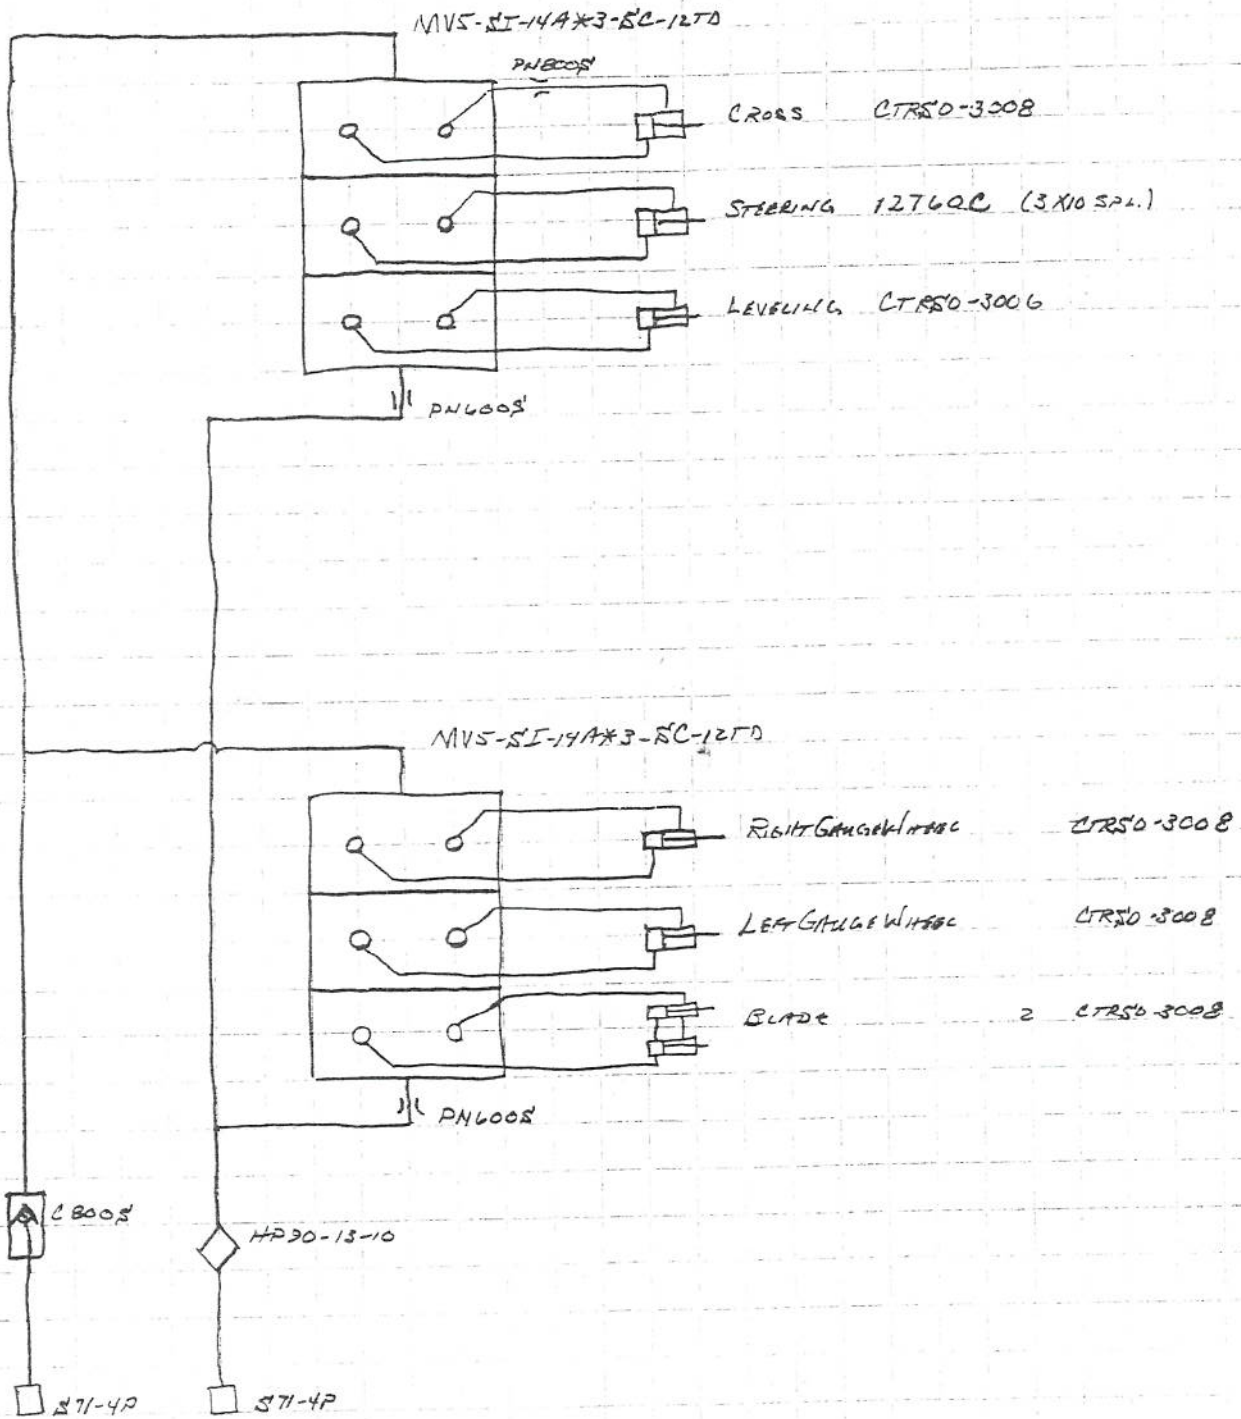 MV5-SI-14A*3-SC-12TD
PN800S
CROSS CTR50-3008
STEERING 1276QC (3X10 SPL.)
LEVELING CTR50-3006
PN600S
MV5-SI-14A*3-SC-12TD
RIGHT GAUGE WHEEL CTR50-3008
LEFT GAUGE WHEEL CTR50-3008
BLADE 2 CTR50-3008
PN600S
C800S
HP90-13-10
S71-4P S71-4P